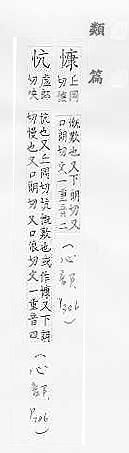 類篇
慷 丘岡切慷慨歎也又下朗切又
口朗切文一重音二(心部
忼 虛郎
忼也又丘岡切忼慨歎也或作慷又下朗
切慢也又口朗切又口浪切文一重音四(心部